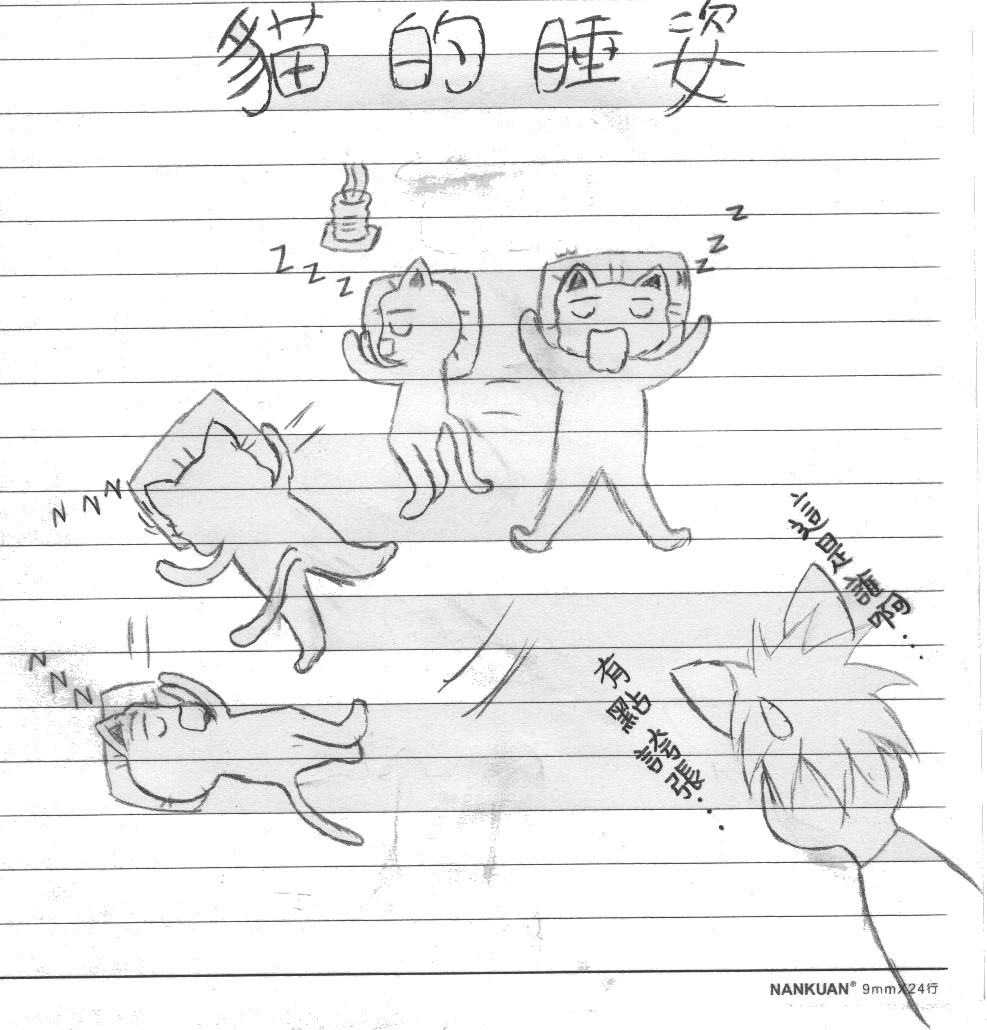 貓的睡姿
z z z
z z z
N N N
這是誰啊...
有點誇張...
N N N
NANKUAN® 9mmX24行